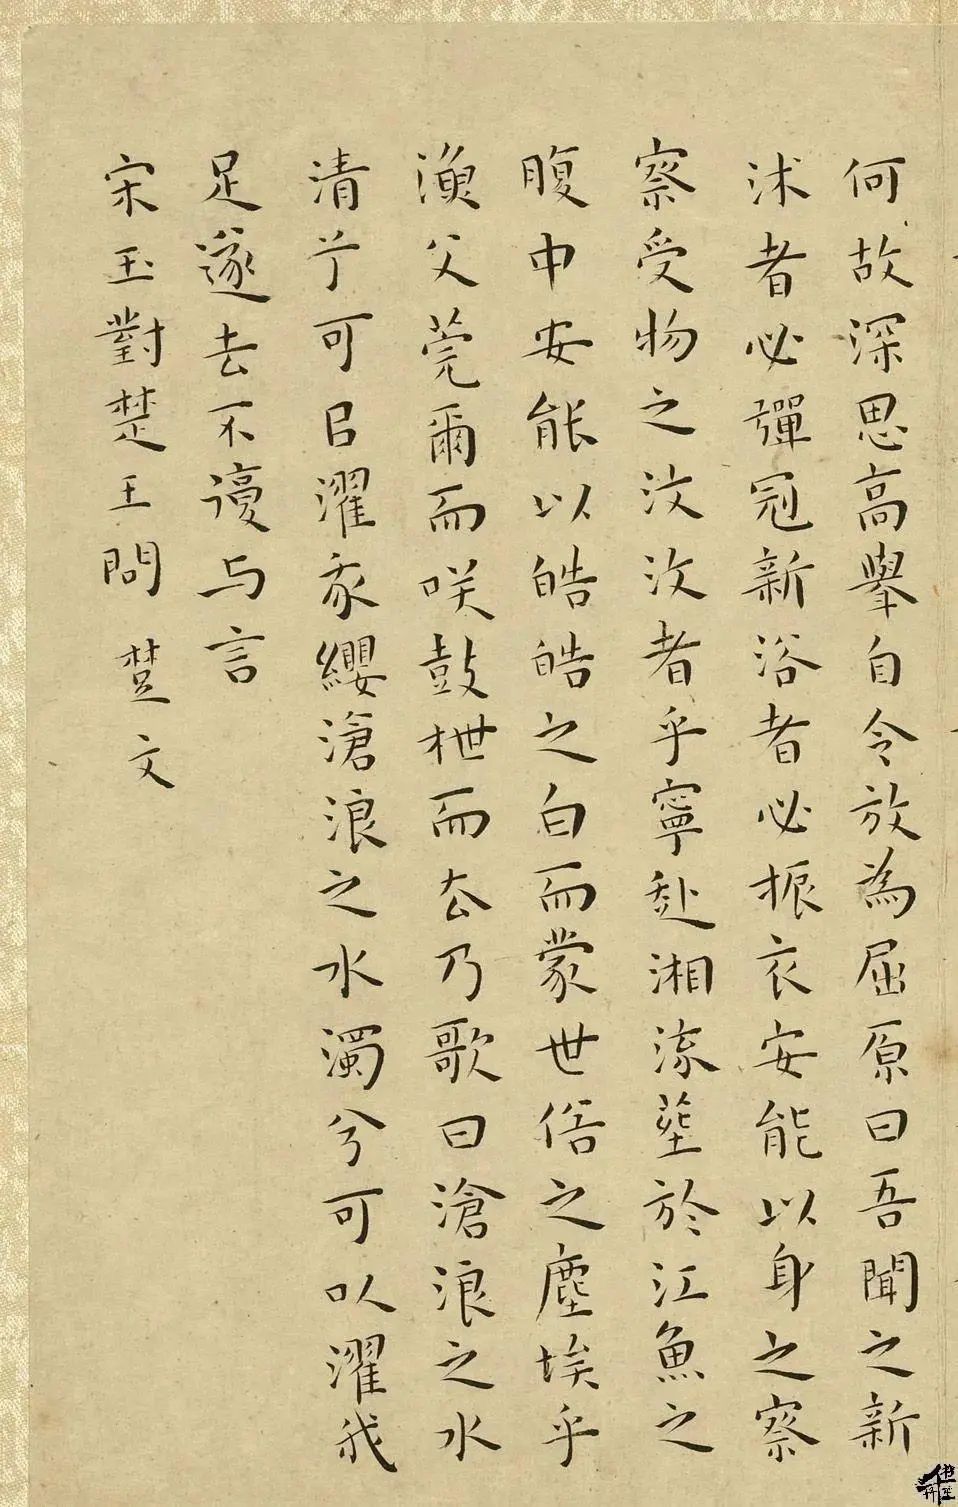 何故深思高舉自令放為屈原曰吾聞之新
沐者必彈冠新浴者必振衣安能以身之察
察受物之汶汶者乎寧赴湘流塟於江魚之
腹中安能以皓皓之白而蒙世俗之塵埃乎
漁父莞爾而咲鼓枻而去乃歌曰滄浪之水
清兮可㠯濯我纓滄浪之水濁兮可以濯我
足遂去不復与言
宋玉對楚王問 楚文